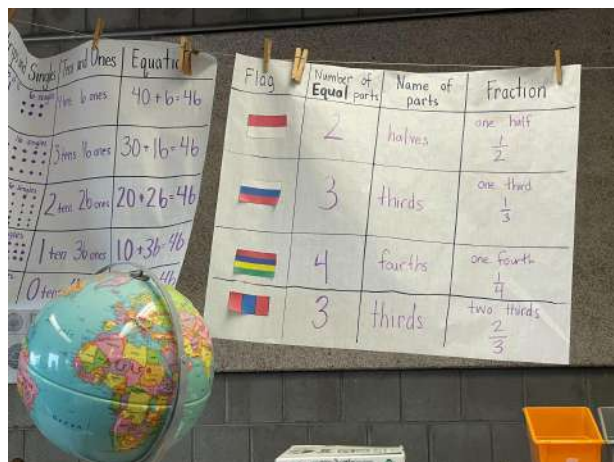 Singles
Tens and Ones
Equation
6 ones
40 + 6 = 46
3 tens 16 ones
30 + 16 = 46
2 tens 26 ones
20 + 26 = 46
1 ten 36 ones
10 + 36 = 46
0 tens
46
Flag
Number of
Equal parts
Name of
parts
Fraction
2
halves
one half
1
2
3
thirds
one third
1
3
4
fourths
one fourth
1
4
3
thirds
two thirds
2
3